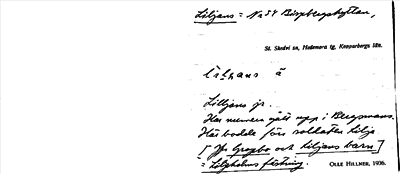 Liljans = No 34 Bispbergshyttan,
St. Skedvi sn, Hedemora tg, Kopparbergs län.
lìl̥ɩans ä
Lilljans jr.
Har numera gått upp i Bergmans.
Här bodde förr soldaten Lilja
[Jfr Gropbo och Liljans barn]
= Liljeholms fästning.
OLLE HILLNER, 1936.